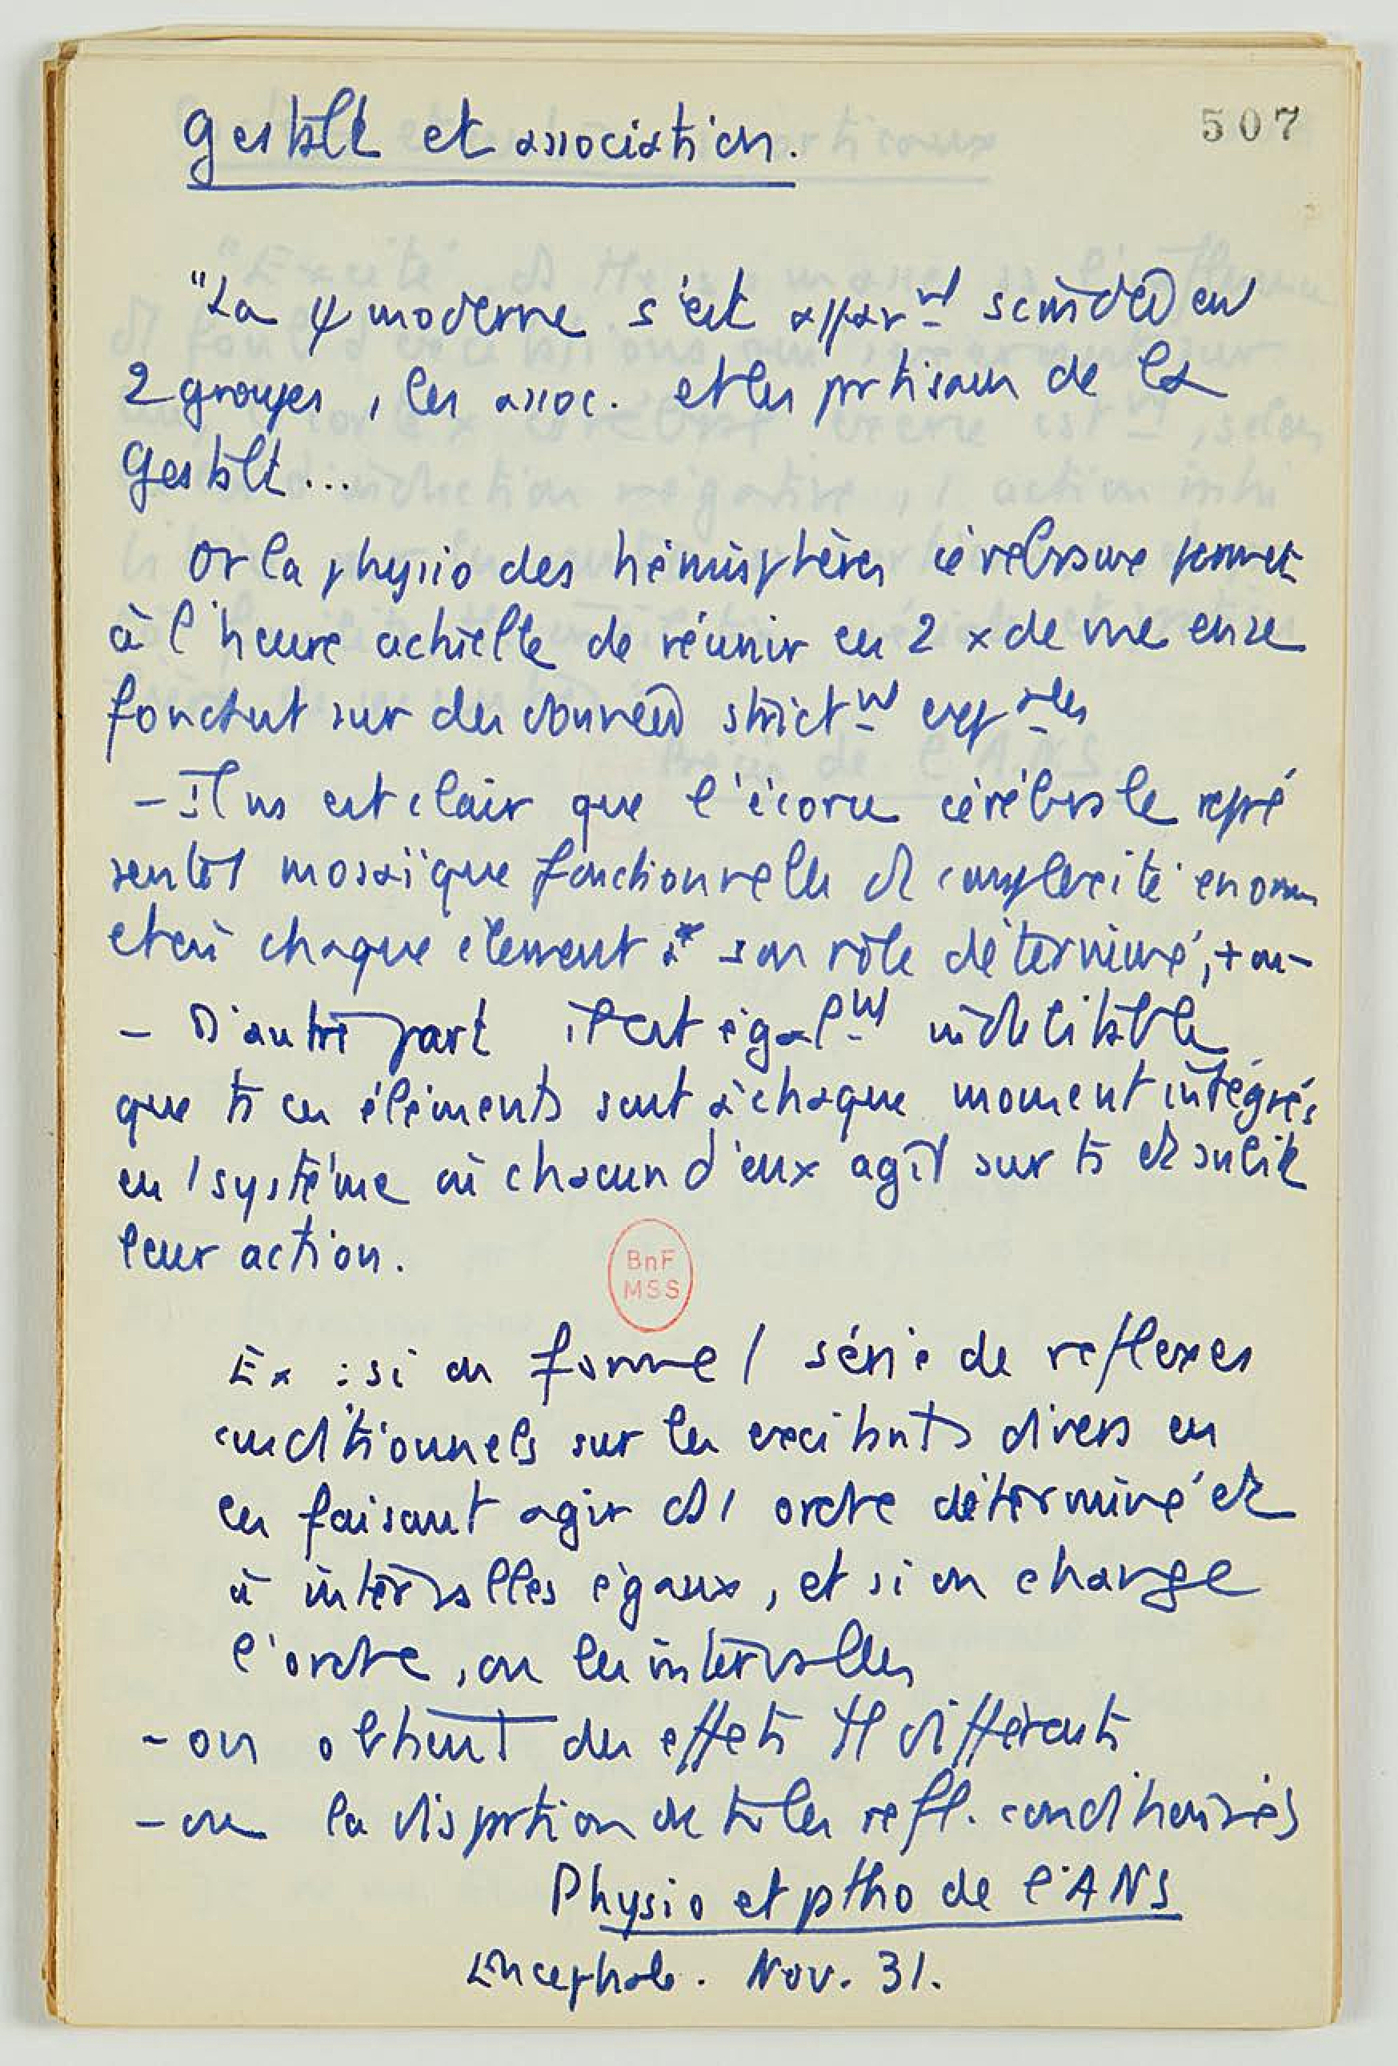 507
Gestalt et association.
"La ψ moderne s'est appar^mt scindée en
2 groupes, les assoc. et les prtisans de la
Gestalt...
Or la physio des hémisphères cérébraux permet
à l'heure actuelle de réunir ces 2 x de vue en se
fondant sur des données strict^mt exp^ales
- Il ns est clair que l'écorce cérébrale repré
sente 1 mosaïque fonctionnelle d complexité enorm
et où chaque élement a son rôle déterminé, + ou -
- D'autre part il est égal^mt indubitable
que ts ces éléments sont à chaque moment intégrés
en 1 système où chacun d'eux agit sur ts et subit
leur action.
BnF
MSS
Ex : si on forme 1 série de reflexes
conditionnels sur les excitants divers en
les faisant agir ds 1 ordre déterminé et
à intervalles égaux, et si on change
l'ordre, ou les intervalles
- on obtient des effets tt différents
- ou la disprtion de ts les refl. conditionnés
Physio et ptho de l'ANS
Encephale. Nov. 31.